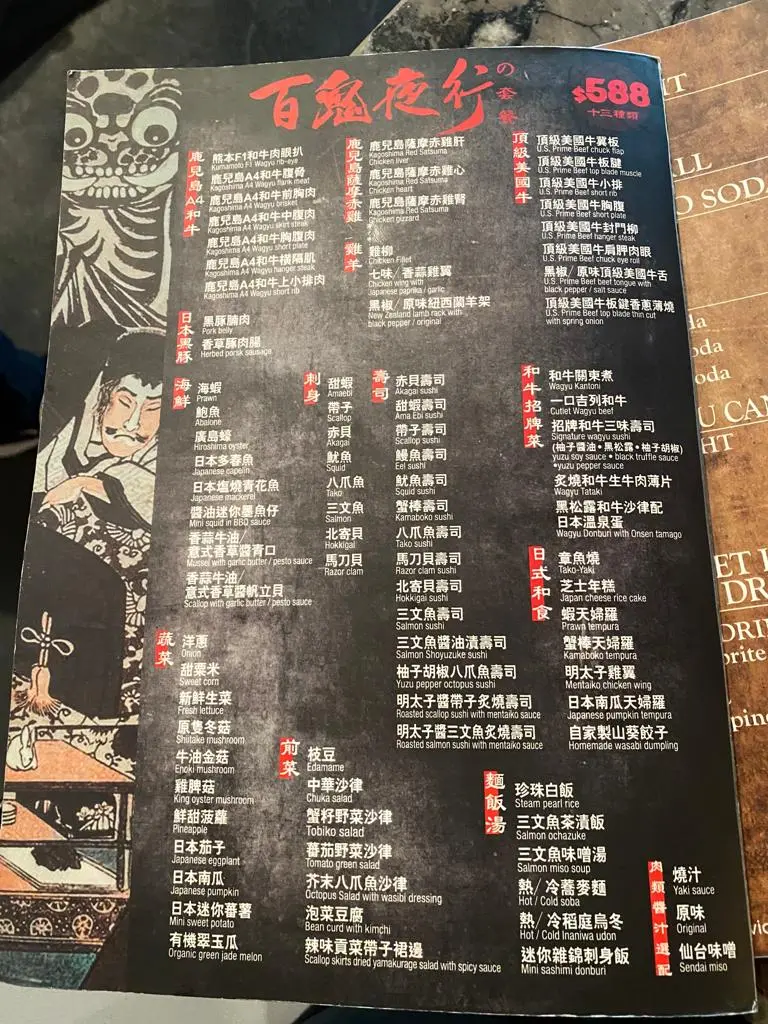 百鬼夜行の套餐
$588
十三種類
鹿兒島A4和牛
熊本F1和牛肉眼扒
Kumamoto F1 Wagyu rib-eye
鹿兒島A4和牛腹骨
Kagoshima A4 Wagyu flank meat
鹿兒島A4和牛前胸肉
Kagoshima A4 Wagyu brisket
鹿兒島A4和牛中腹肉
Kagoshima A4 Wagyu skirt steak
鹿兒島A4和牛胸腹肉
Kagoshima A4 Wagyu short plate
鹿兒島A4和牛橫隔肌
Kagoshima A4 Wagyu hanger steak
鹿兒島A4和牛上小排肉
Kagoshima A4 Wagyu short rib
日本黑豚
黑豚腩肉
Pork belly
香草豚肉腸
Herbed pork sausage
鹿兒島薩摩赤雞
鹿兒島薩摩赤雞肝
Kagoshima Red Satsuma
Chicken liver
鹿兒島薩摩赤雞心
Kagoshima Red Satsuma
Chicken heart
鹿兒島薩摩赤雞腎
Kagoshima Red Satsuma
Chicken gizzard
雞羊
雞柳
Chicken Fillet
七味/香蒜雞翼
Chicken wing with
Japanese paprika / garlic
黑椒/原味紐西蘭羊架
New Zealand lamb rack with
black pepper / original
頂級美國牛
頂級美國牛翼板
U.S. Prime Beef chuck flap
頂級美國牛板腱
U.S. Prime Beef top blade muscle
頂級美國牛小排
U.S. Prime Beef short rib
頂級美國牛胸腹
U.S. Prime Beef short plate
頂級美國牛封門柳
U.S. Prime Beef hanger steak
頂級美國牛肩胛肉眼
U.S. Prime Beef chuck eye roll
黑椒/原味頂級美國牛舌
U.S. Prime Beef beef tongue with
black pepper / salt sauce
頂級美國牛板鍵香蔥薄燒
U.S. Prime Beef top blade thin cut
with spring onion
海鮮
海蝦
Prawn
鮑魚
Abalone
廣島蠔
Hiroshima oyster
日本多春魚
Japanese capelin
日本塩燒青花魚
Japanese mackerel
醬油迷你墨魚仔
Mini squid in BBQ sauce
香蒜牛油/
意式香草醬青口
Mussel with garlic butter / pesto sauce
香蒜牛油/
意式香草醬帆立貝
Scallop with garlic butter / pesto sauce
刺身
甜蝦
Amaebi
帶子
Scallop
赤貝
Akagai
魷魚
Squid
八爪魚
Tako
三文魚
Salmon
北寄貝
Hokkigai
馬刀貝
Razor clam
壽司
赤貝壽司
Akagai sushi
甜蝦壽司
Ama Ebi sushi
帶子壽司
Scallop sushi
鰻魚壽司
Eel sushi
魷魚壽司
Squid sushi
蟹棒壽司
Kamaboko sushi
八爪魚壽司
Tako sushi
馬刀貝壽司
Razor clam sushi
北寄貝壽司
Hokkigai sushi
三文魚壽司
Salmon sushi
三文魚醬油漬壽司
Salmon Shoyuzuke sushi
柚子胡椒八爪魚壽司
Yuzu pepper octopus sushi
明太子醬帶子炙燒壽司
Roasted scallop sushi with mentaiko sauce
明太子醬三文魚炙燒壽司
Roasted salmon sushi with mentaiko sauce
和牛招牌菜
和牛關東煮
Wagyu Kantoni
一口吉列和牛
Cutlet Wagyu beef
招牌和牛三味壽司
Signature wagyu sushi
(柚子醬油•黑松露•柚子胡椒)
yuzu soy sauce • black truffle sauce
•yuzu pepper sauce
炙燒和牛生牛肉薄片
Wagyu Tataki
黑松露和牛沙律配
日本溫泉蛋
Wagyu Donburi with Onsen tamago
日式和食
章魚燒
Tako-Yaki
芝士年糕
Japan cheese rice cake
蝦天婦羅
Prawn tempura
蟹棒天婦羅
Kamaboko tempura
明太子雞翼
Mentaiko chicken wing
日本南瓜天婦羅
Japanese pumpkin tempura
自家製山葵餃子
Homemade wasabi dumpling
蔬菜
洋蔥
Onion
甜粟米
Sweet corn
新鮮生菜
Fresh lettuce
原隻冬菇
Shiitake mushroom
牛油金菇
Enoki mushroom
雞脾菇
King oyster mushroom
鮮甜菠蘿
Pineapple
日本茄子
Japanese eggplant
日本南瓜
Japanese pumpkin
日本迷你蕃薯
Mini sweet potato
有機翠玉瓜
Organic green jade melon
前菜
枝豆
Edamame
中華沙律
Chuka salad
蟹籽野菜沙律
Tobiko salad
蕃茄野菜沙律
Tomato green salad
芥末八爪魚沙律
Octopus Salad with wasibi dressing
泡菜豆腐
Bean curd with kimchi
辣味貢菜帶子裙邊
Scallop skirts dried yamakurage salad with spicy sauce
麵飯湯
珍珠白飯
Steam pearl rice
三文魚茶漬飯
Salmon ochazuke
三文魚味噌湯
Salmon miso soup
熱/冷蕎麥麵
Hot / Cold soba
熱/冷稻庭烏冬
Hot / Cold Inaniwa udon
迷你雜錦刺身飯
Mini sashimi donburi
肉類醬汁選配
燒汁
Yaki sauce
原味
Original
仙台味噌
Sendai miso